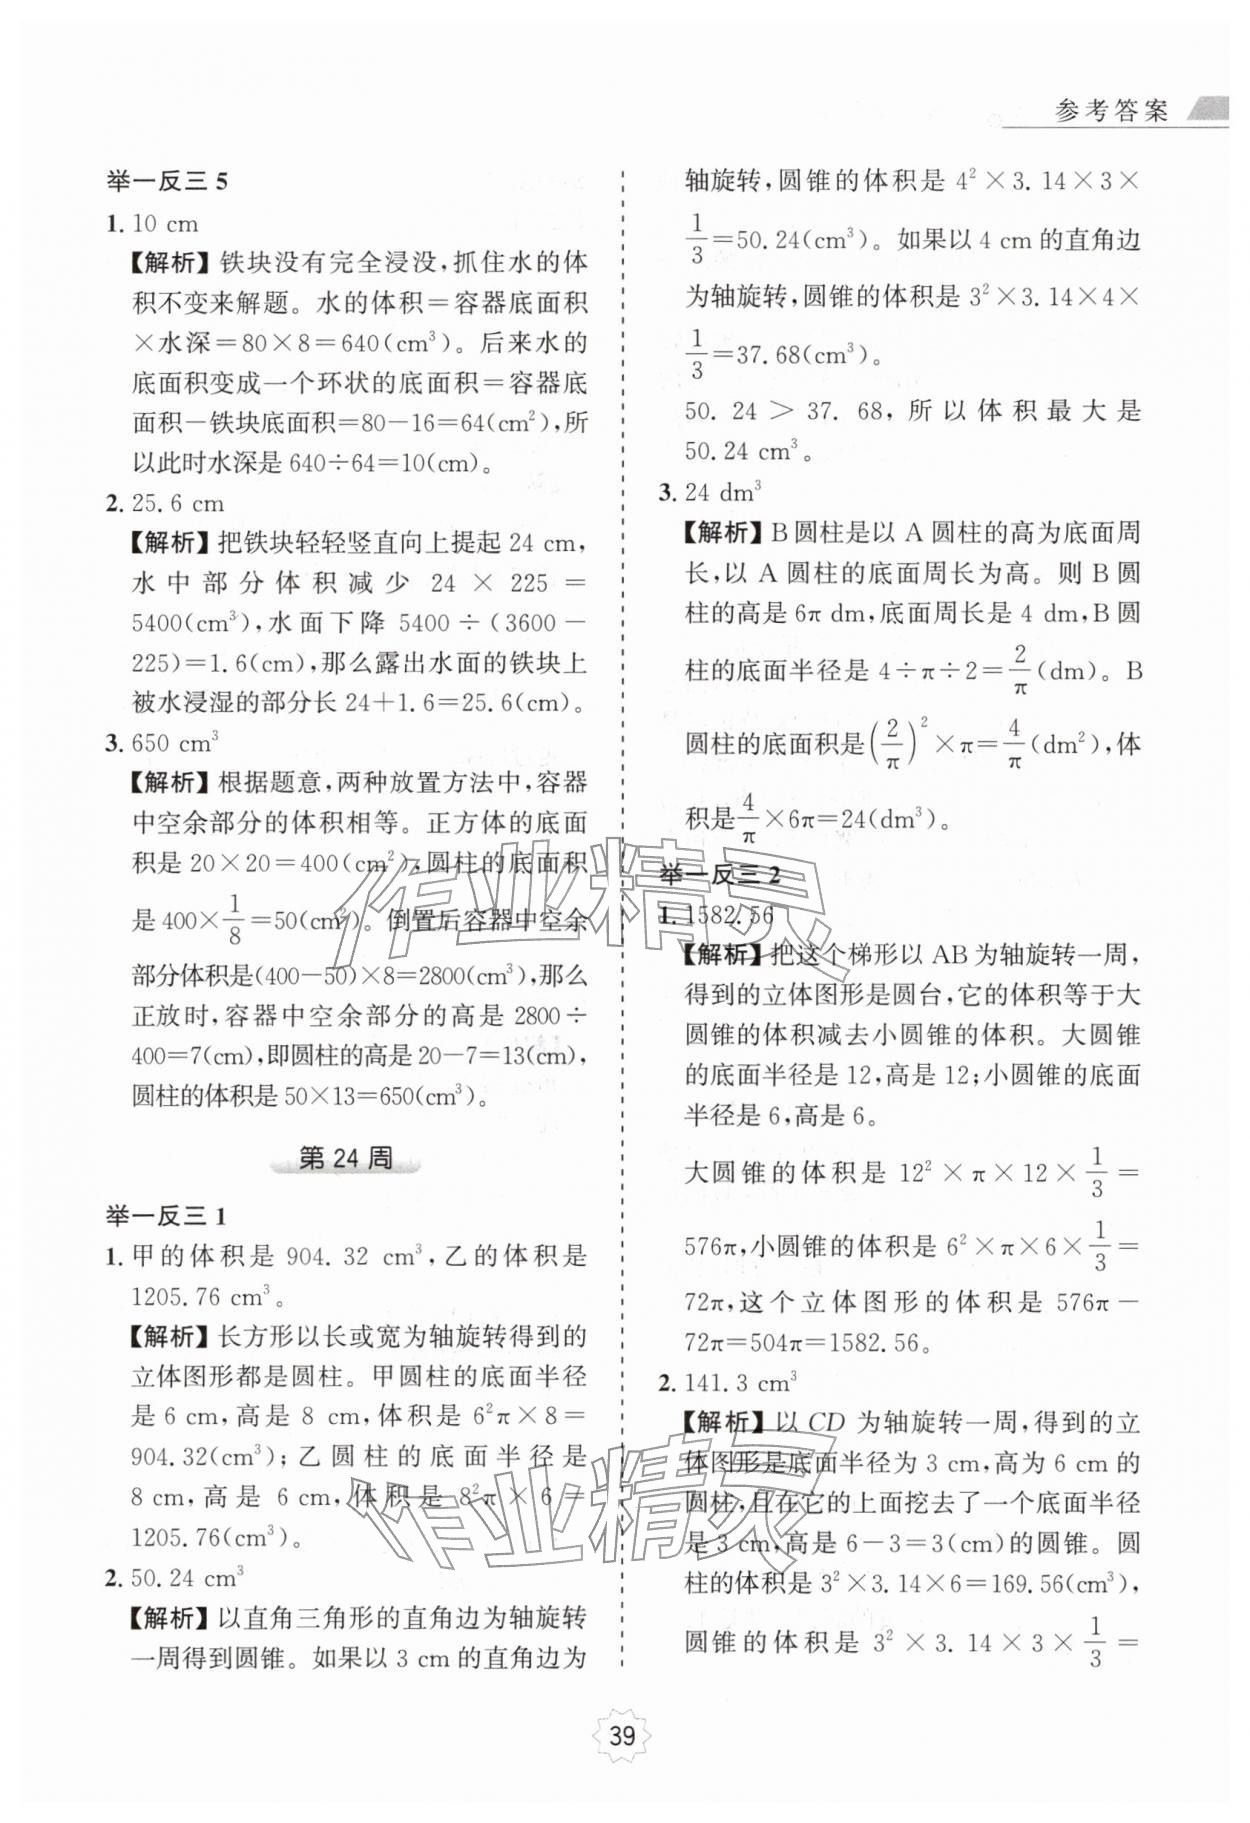 参考答案
举一反三 5
1. 10 cm
【解析】铁块没有完全浸没,抓住水的体
积不变来解题。水的体积=容器底面积
×水深=80×8=640(cm³)。后来水的
底面积变成一个环状的底面积=容器底
面积-铁块底面积=80-16=64(cm²),所
以此时水深是 640÷64=10(cm)。
2. 25.6 cm
【解析】把铁块轻轻竖直向上提起 24 cm,
水中部分体积减少 24 × 225 =
5400(cm³),水面下降 5400÷(3600-
225)=1.6(cm),那么露出水面的铁块上
被水浸湿的部分长 24+1.6=25.6(cm)。
3. 650 cm³
【解析】根据题意,两种放置方法中,容器
中空余部分的体积相等。正方体的底面
积是 20×20=400(cm²),圆柱的底面积
是 400×1/8=50(cm²)。倒置后容器中空余
部分体积是(400-50)×8=2800(cm³),那么
正放时,容器中空余部分的高是 2800÷
400=7(cm),即圆柱的高是 20-7=13(cm),
圆柱的体积是 50×13=650(cm³)。
第 24 周
举一反三 1
1. 甲的体积是 904.32 cm³,乙的体积是
1205.76 cm³。
【解析】长方形以长或宽为轴旋转得到的
立体图形都是圆柱。甲圆柱的底面半径
是 6 cm,高是 8 cm,体积是 6²π×8=
904.32(cm³);乙圆柱的底面半径是
8 cm,高是 6 cm,体积是 8²π × 6 =
1205.76(cm³)。
2. 50.24 cm³
【解析】以直角三角形的直角边为轴旋转
一周得到圆锥。如果以 3 cm 的直角边为
轴旋转,圆锥的体积是 4²×3.14×3×
1/3=50.24(cm³)。如果以 4 cm 的直角边
为轴旋转,圆锥的体积是 3²×3.14×4×
1/3=37.68(cm³)。
50.24 > 37.68,所以体积最大是
50.24 cm³。
3. 24 dm³
【解析】B圆柱是以 A 圆柱的高为底面周
长,以 A 圆柱的底面周长为高。则 B 圆
柱的高是 6π dm,底面周长是 4 dm,B 圆
柱的底面半径是 4÷π÷2=2/π(dm)。B
圆柱的底面积是(2/π)²×π=4/π(dm²),体
积是4/π×6π=24(dm³)。
举一反三 2
1. 1582.56
【解析】把这个梯形以 AB 为轴旋转一周,
得到的立体图形是圆台,它的体积等于大
圆锥的体积减去小圆锥的体积。大圆锥
的底面半径是 12,高是 12;小圆锥的底面
半径是 6,高是 6。
大圆锥的体积是 12²×π×12×1/3=
576π,小圆锥的体积是 6²×π×6×1/3=
72π,这个立体图形的体积是 576π-
72π=504π=1582.56。
2. 141.3 cm³
【解析】以 CD 为轴旋转一周,得到的立
体图形是底面半径为 3 cm,高为 6 cm 的
圆柱,且在它的上面挖去了一个底面半径
是 3 cm,高是 6-3=3(cm)的圆锥。圆
柱的体积是 3²×3.14×6=169.56(cm³),
圆锥的体积是 3²×3.14×3×1/3=
39
作业精灵
作业精灵